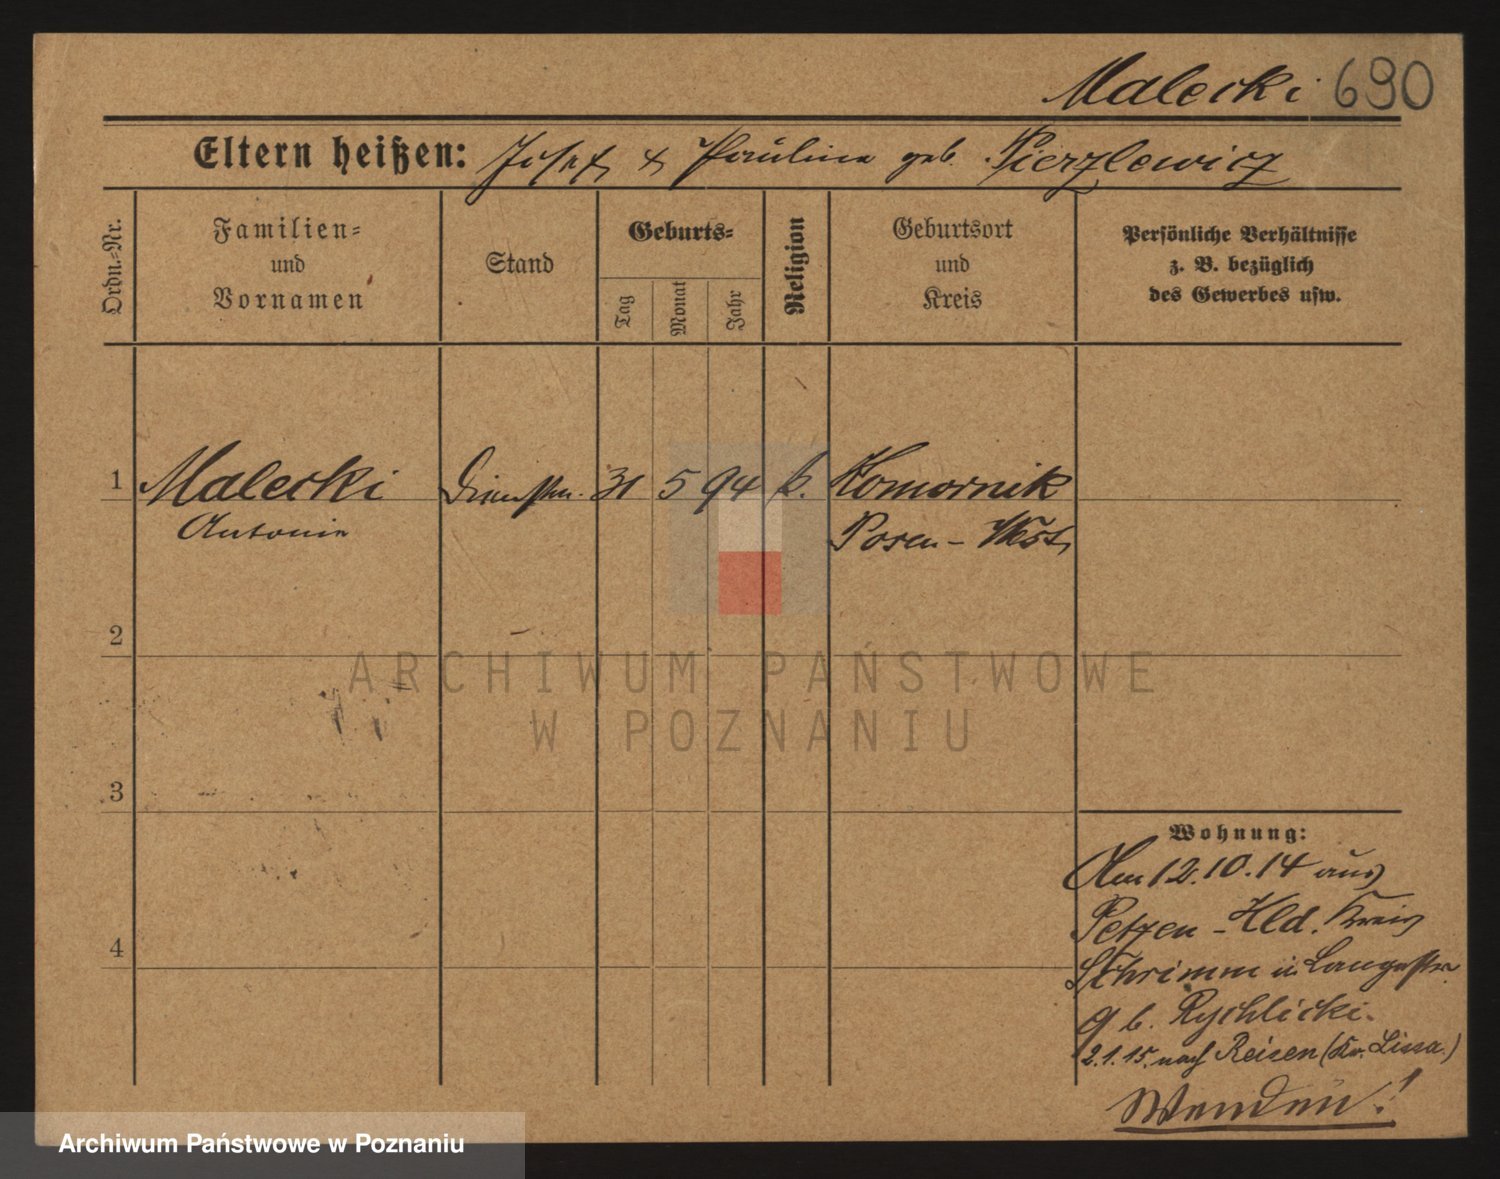 Malecki 690
Eltern heißen: Josef & Paulina geb. Pierzlewicz
Ordn.-Nr.
Familien-
und
Vornamen
Stand
Geburts-
Tag
Monat
Jahr
Religion
Geburtsort
und
Kreis
Persönliche Verhältnisse
z. B. bezüglich
des Gewerbes usw.
1 Malecki Dienstm. 31 5 94 k. Komornik
Antonie Posen-West
2
ARCHIWUM PAŃSTWOWE
W POZNANIU
3
Wohnung:
Am 12.10.14 aus
Petzen-Hld. Kreis
Schrimm in Langestr.
9 b. Rychlicki.
2.1.15. nach Reisen (Kr. Lissa.)
4
Wenden!
Archiwum Państwowe w Poznaniu